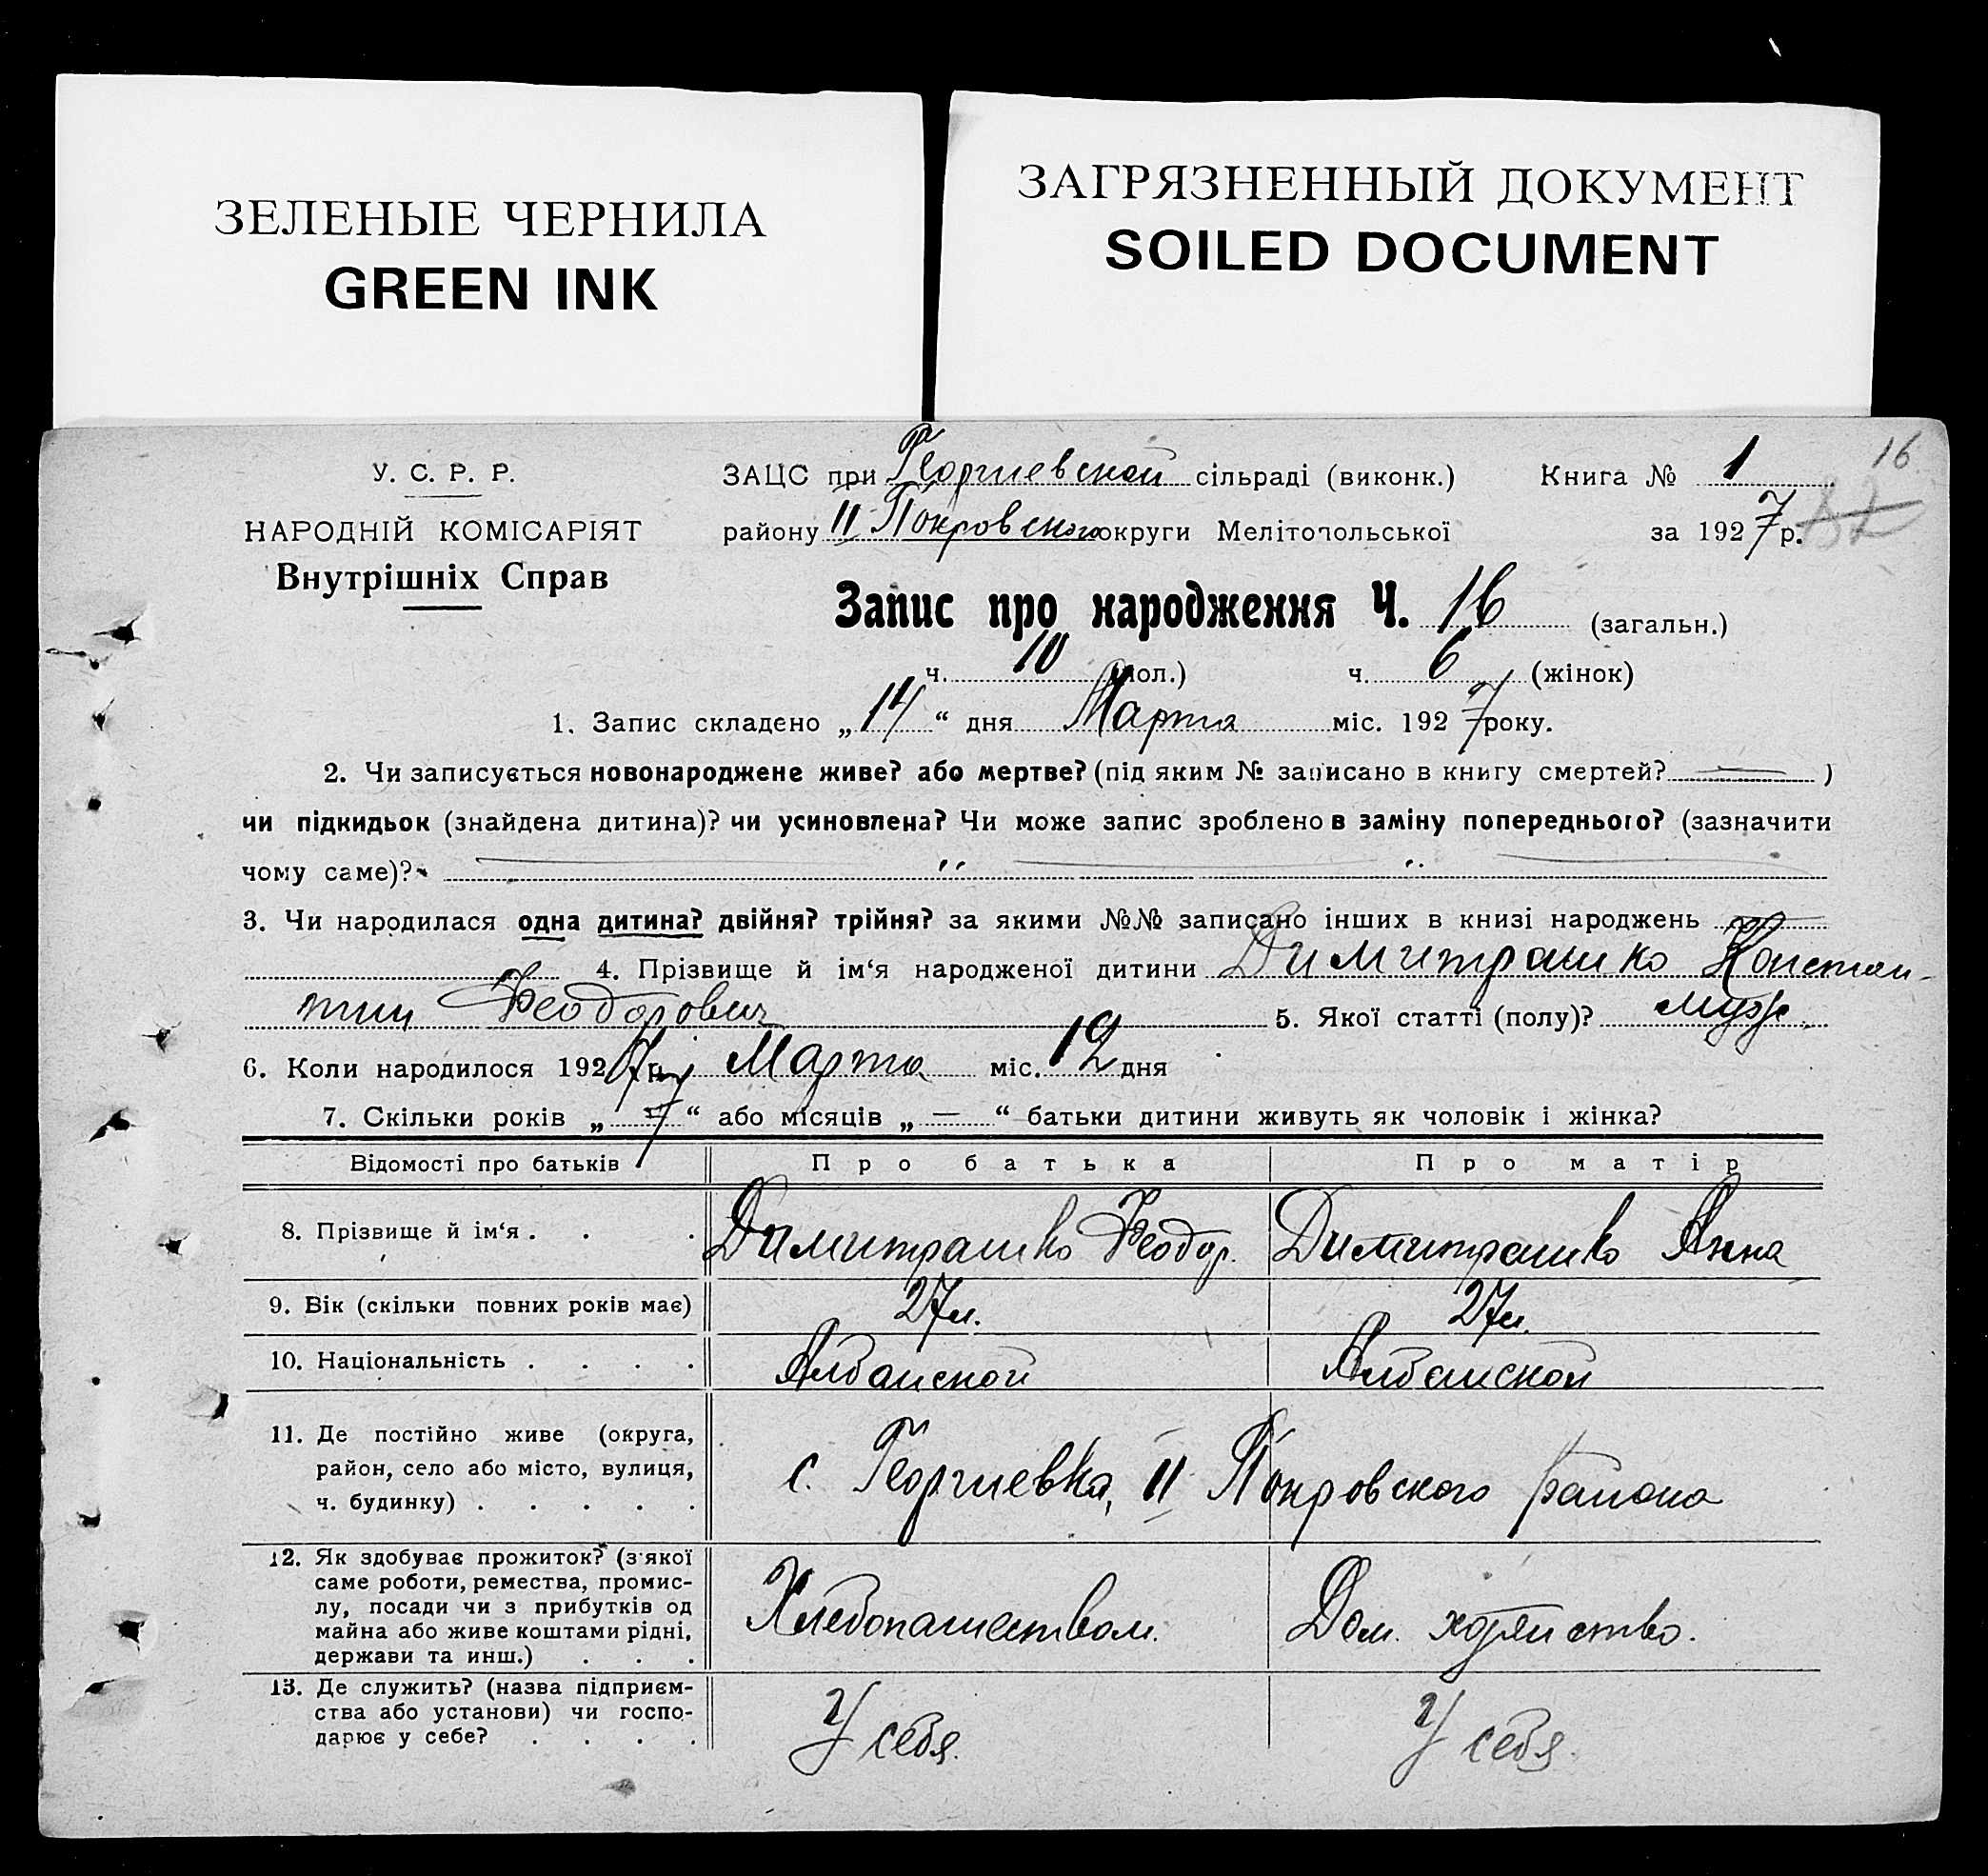 ЗЕЛЕНЫЕ ЧЕРНИЛА
GREEN INK
ЗАГРЯЗНЕННЫЙ ДОКУМЕНТ
SOILED DOCUMENT
16
У. С. Р. Р.
НАРОДНІЙ КОМІСАРІЯТ
Внутрішніх Справ
ЗАЦС при Георгиевской сільраді (виконк.) Книга № 1
району II Покровского округи Мелітопольської за 1927 р.
Запис про народження Ч. 16 (загальн.)
ч. 10 (пол.) ч. 6 (жінок)
1. Запис складено „14“ дня Марта міс. 1927 року.
2. Чи записується новонароджене живе? або мертве? (під яким № записано в книгу смертей? — )
чи підкидьок (знайдена дитина)? чи усиновлена? Чи може запис зроблено в заміну попереднього? (зазначити
чому саме)?
3. Чи народилася одна дитина? двійня? трійня? за якими №№ записано інших в книзі народжень —
4. Прізвище й ім‘я народженої дитини Димитрашко Констан-
тин Феодорович 5. Якої статті (полу)? муж.
6. Коли народилося 1927 р. Марта міс. 12 дня
7. Скільки років „7“ або місяців „—“ батьки дитини живуть як чоловік і жінка?
Відомості про батьків Про батька Про матір
8. Прізвище й ім‘я . . . Димитрашко Феодор. Димитрашко Анна
9. Вік (скільки повних років має) 27 л. 27 л.
10. Національність . . . . Албанской Албанской
11. Де постійно живе (округа,
район, село або місто, вулиця,
ч. будинку) . . . . . с. Георгиевка, II Покровского района
12. Як здобуває прожиток? (з'якої
саме роботи, ремества, промис-
лу, посади чи з прибутків од
майна або живе коштами рідні,
держави та инш.) . . . Хлебопашеством. Дом. хозяйство.
13. Де служить? (назва підприєм-
ства або установи) чи госпо-
дарює у себе? . . . . У себя. У себя.